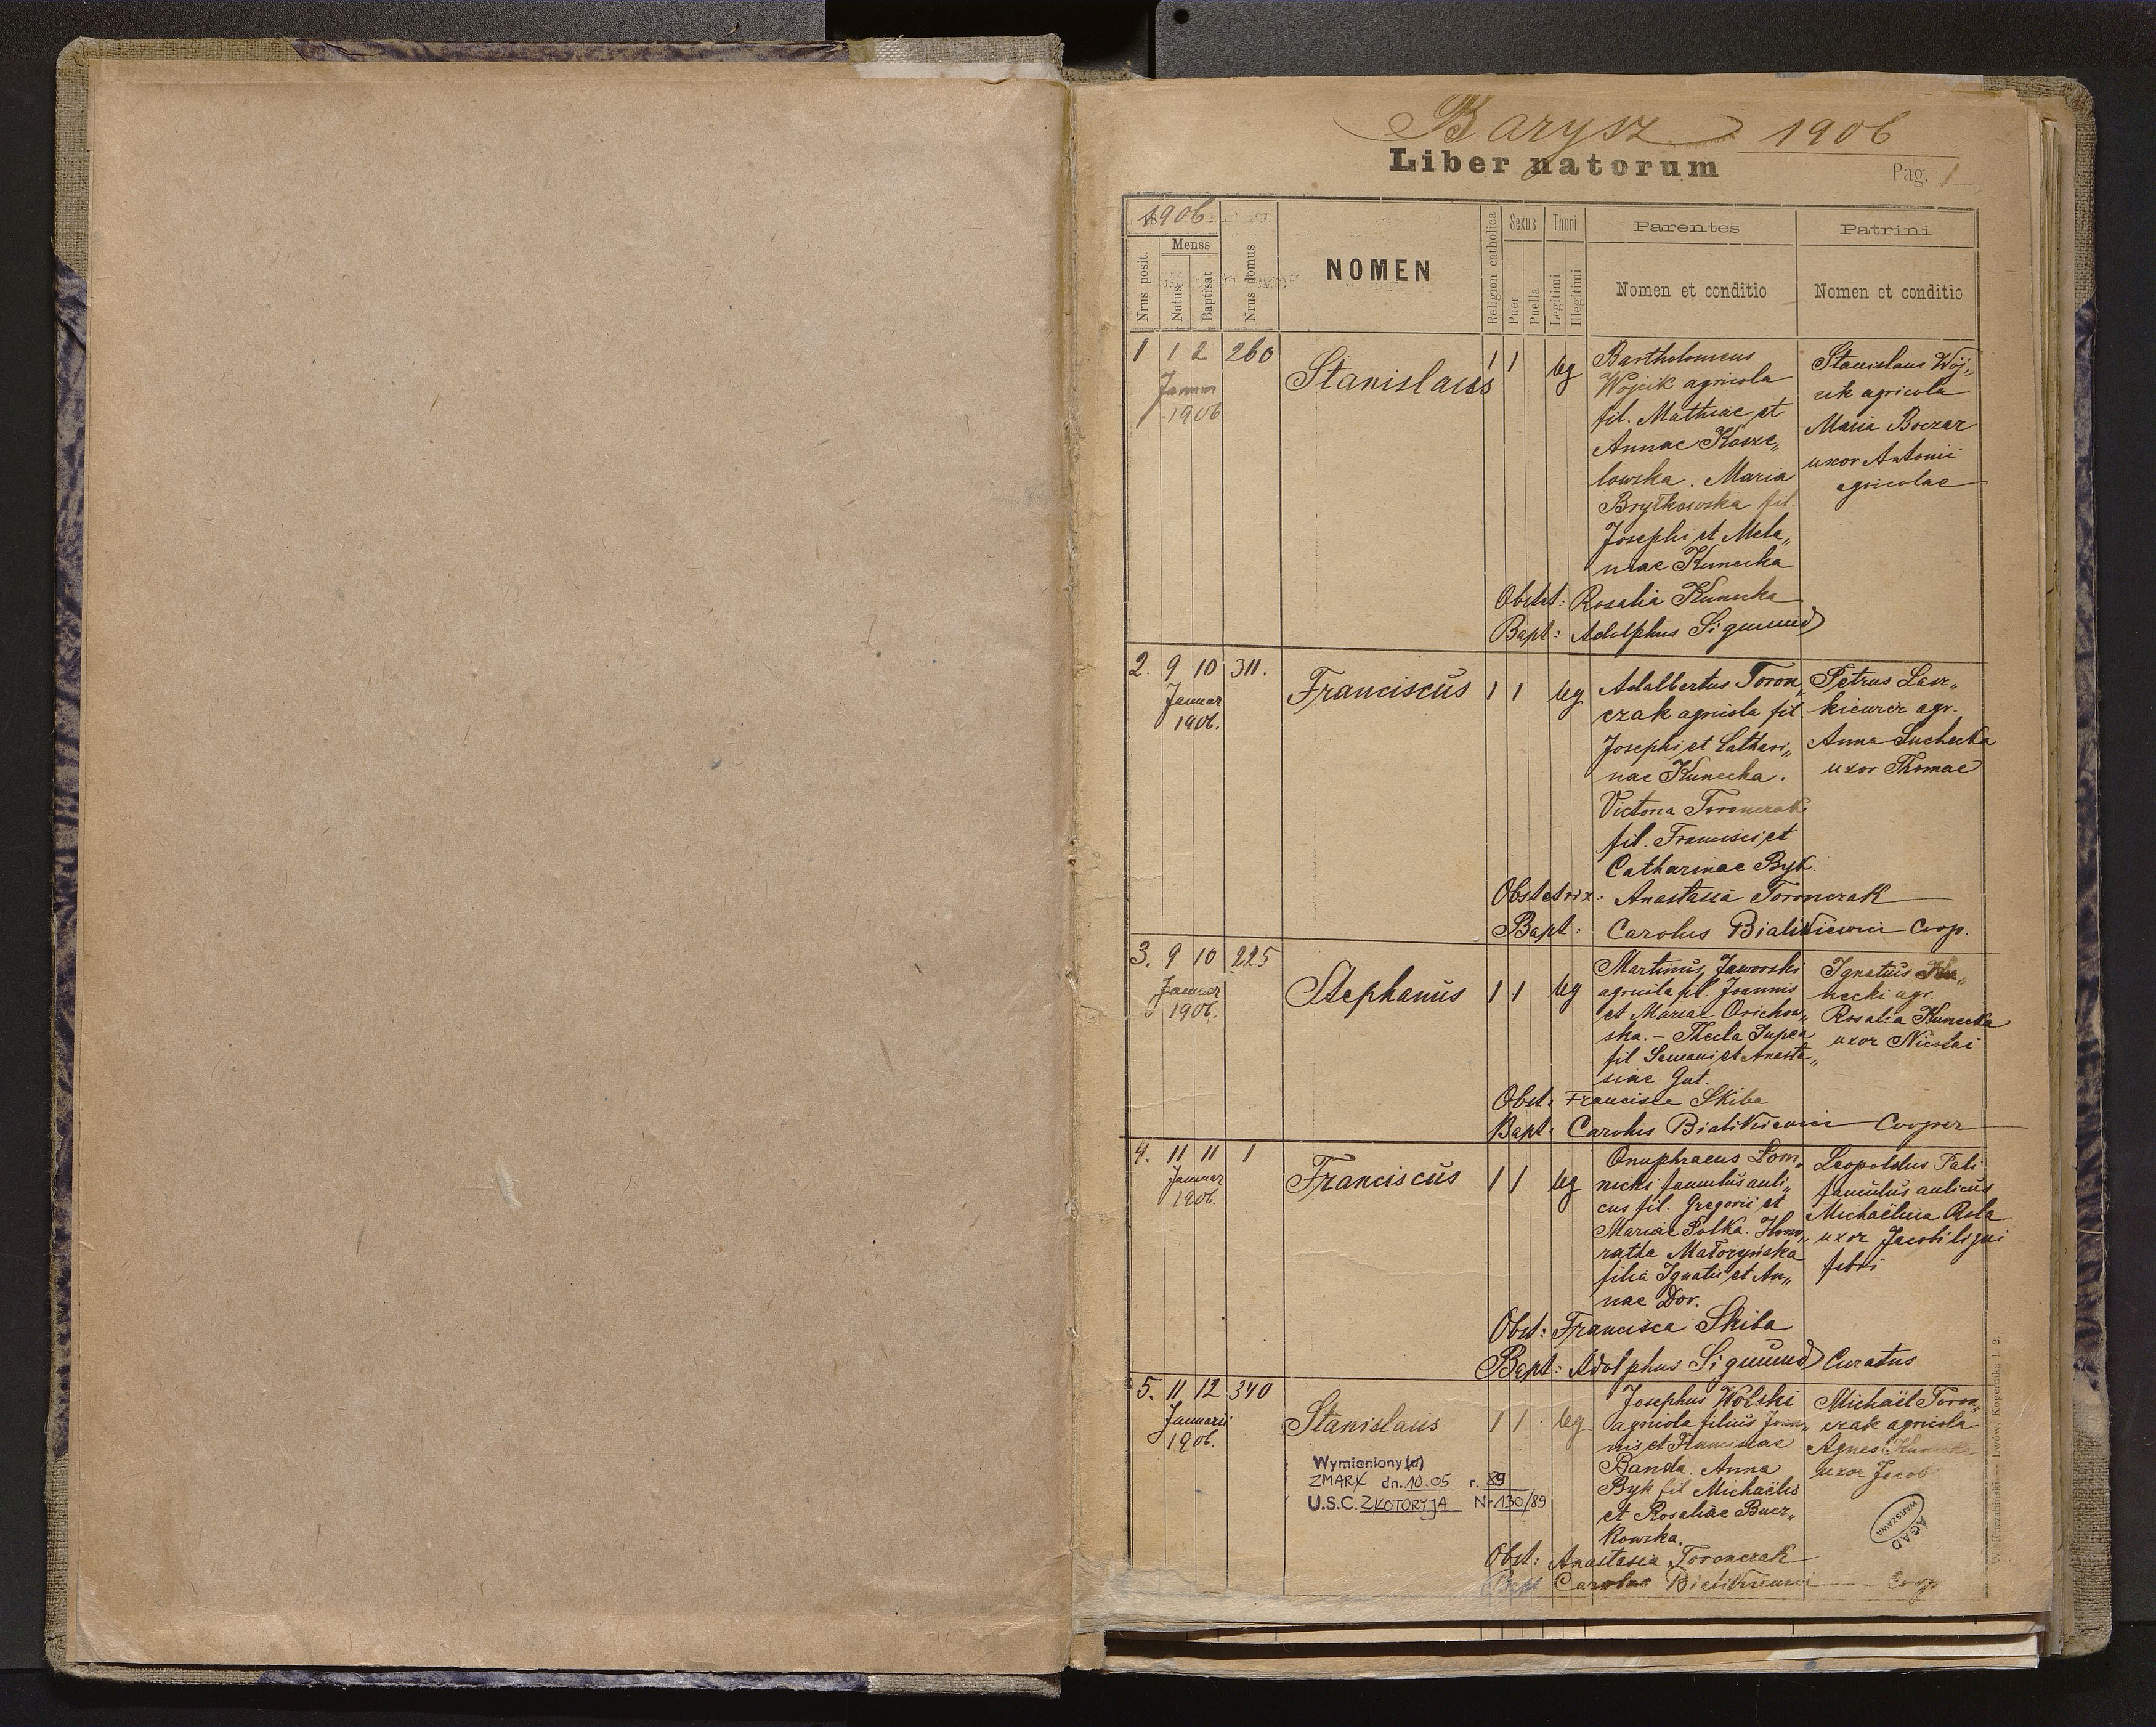 Barysz 1906
Liber natorum
Pag. 1
1906
Nrus posit.
Menss
Natus
Baptisat
Nrus domus
NOMEN
Religion catholica
Sexus
Puer
Puella
Thori
Legitimi
Illegitimi
Parentes
Nomen et conditio
Patrini
Nomen et conditio
1 1 2 260
Januar
1906
Stanislaus
1 1 leg
Bartholomeus
Wojcik agricola
fil. Mathiae et
Annae Kosze„
lowska. Maria
Brytkowska fil.
Josephi et Mela„
niae Kunecka
Stanislaus Wój„
cik agricola
Maria Boczar
uxor Antonii
agricolae
Obstet: Rosalia Kunecka
Bapt: Adolphus Sigmund
2. 9 10 311.
Januar
1906.
Franciscus
1 1 leg
Adalbertus Toron„
czak agricola fil
Josephi et Cathari„
nae Kunecka.
Victoria Toronczak
fil. Francisci et
Catharinae Byk.
Petrus Lasz„
kiewicz agr.
Anna Suchecka
uxor Thomae
Obstetrix: Anastasia Toronczak
Bapt: Carolus Bialikiewicz Coop.
3. 9 10 225
Januar
1906.
Stephanus
1 1 leg
Martinus Jaworski
agricola fil. Joannis
et Mariae Orichow„
ska. - Thecla Jupca
fil Semani et Anasta„
siae Gut.
Ignatius Ku„
necki agr.
Rosalia Kunecka
uxor Nicolai
Obst: Francisca Skiba
Bapt: Carolus Bialikiewicz Cooper
4. 11 11 1
Januar
1906.
Franciscus
1 1 leg
Onuphraeus Lom„
nicki famulus auli„
cus fil. Gregorii et
Mariae Polka. Hono„
ratha Małozyńska
filia Ignatii et An„
nae Dor.
Leopoldus Pali
famulus aulicus
Michaëlina Rela
uxor Jacobi ligni
fabri
Obst: Francisca Skiba
Bapt: Adolphus Sigmund Curatus
5. 11 12 340
Januarii
1906.
Stanislaus
1 1 leg
Josephus Wolski
agricola filius Joan„
nis et Franciscae
Banda. Anna
Byk fil Michaëlis
et Rosaliae Bucz„
kowska.
Michaël Toron„
czak agricola
Agnes Kunecka
uxor Jacobi
Wymieniony(a)
ZMARŁ dn. 10.05 r. 89
U.S.C. ZŁOTORYJA Nr. 130/89
AGAD
WARSZAWA
Obst: Anastasia Toronczak
Bapt Carolus Bialikiewicz Coop
Lwów, Kopernika 1. 2.